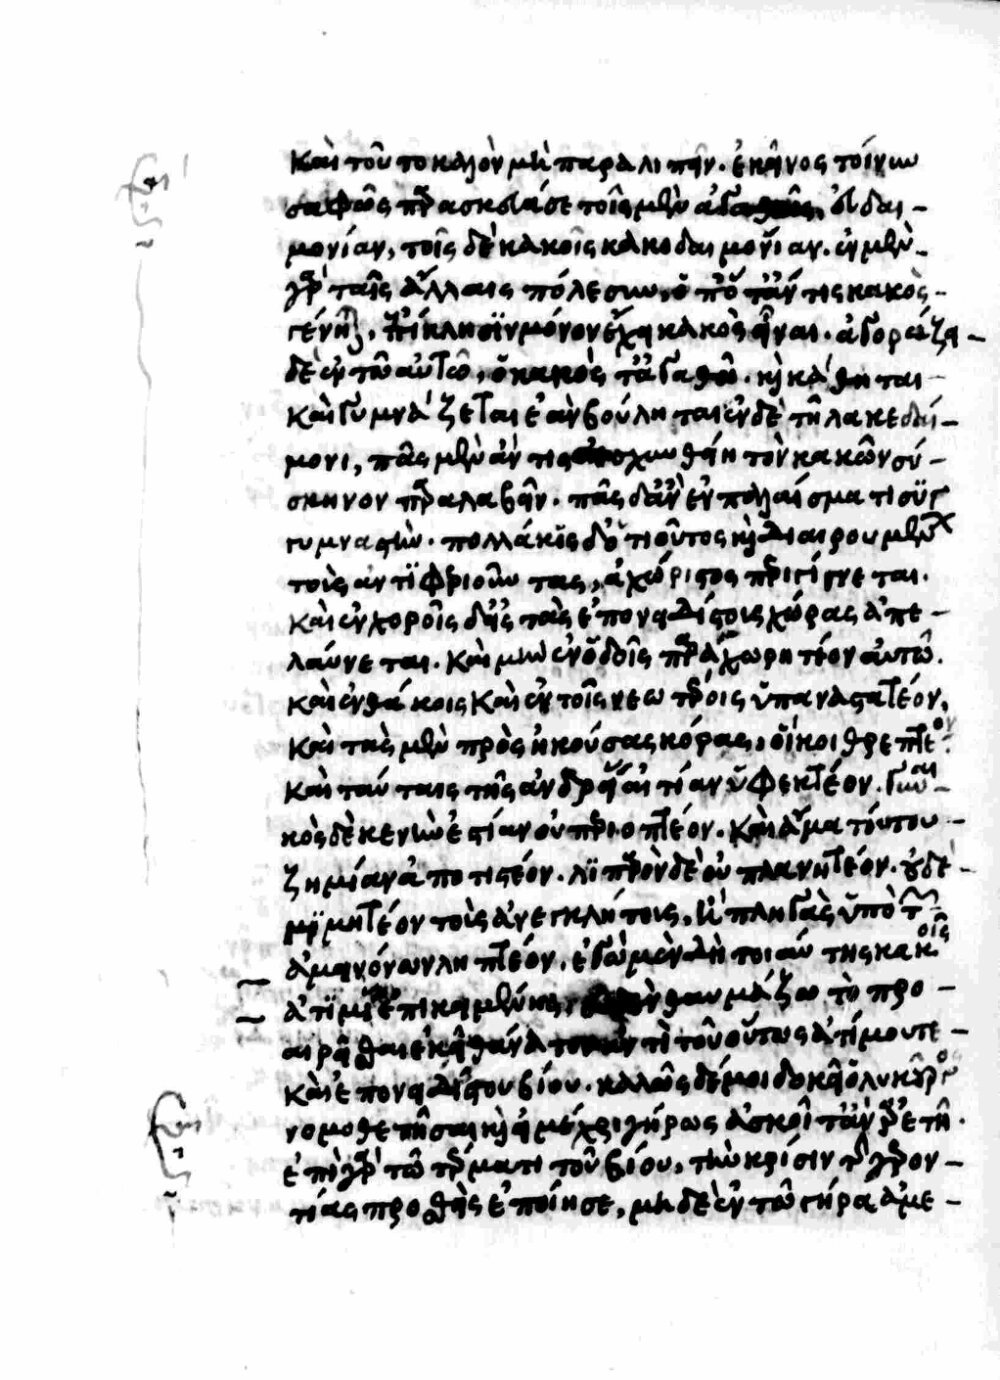 καὶ τοῦτο καλὸν μὴ παραλιπεῖν. ἐκεῖνος τοίνυν
σαφῶς παρασκευάσε τοῖς μὲν ἀγαθοῖς, εὐδαι-
μονίαν, τοῖς δὲ κακοῖς κακοδαιμονίαν. ἐν μὲν
γὰρ ταῖς ἄλλαις πόλεσιν, ὁπόταν τις κακὸς
γένηται, ἐπίκλησιν μόνον ἔχει κακὸς εἶναι. ἀγοράζει
δὲ ἐν τῶ αὐτῶ, ὁ κακὸς τἀγαθῶ. καὶ κάθηται
καὶ γυμνάζεται ἐὰν βούληται ἐν δὲ τῆ λακεδαί-
μονι, πᾶς μὲν ἄν τις αἰσχυνθείη τὸν κακῶν σύ-
σκηνον παραλαβεῖν. πᾶς δ' ἂν ἐν παλαίσματι συγ
γυμναστὴν. πολλάκις δ' ὁ τιοῦτος καὶ διαιρουμένων
τοὺς ἀντισφεριοῦντας, ἀχώριστος περιγίγνεται.
καὶ ἐν χοροῖς δ' εἰς τὰς ἐπονειδίστοις χώρας ἀπε-
λαύνεται. καὶ μὴν ἐν ὁδοῖς παραχωρητέον αὐτῶ.
καὶ ἐν θάκοις καὶ ἐν τοῖς νεωτέροις ὑπαναστατέον.
καὶ τὰς μὲν προσηκούσας κόρας, οἴκοι θρεπτέον.
καὶ ταύταις τῆς ἀνδρείας αἰτίαν ὑφεκτέον. γυναι-
κὸς δὲ κενὴν ἑστίαν οὐ περιοπτέον. καὶ ἅμα τούτου
ζημίαν ἀποτιστέον. λιπαρὸν δὲ οὐ πλανητέον. οὐδὲ
μιμητέον τοὺς ἀνεγκλήτοις, ἢ πληγὰς ὑπὸ τῶν
ἀμεινόνων ληπτέον. ἐγὼ μὲν δὴ τοιαύτης κακοῖς
ἀτιμίας ἐπικειμένης, θαυμάζω τὸ προ-
αιρεῖσθαι ἐκεῖ θάνατον ἀντὶ τοῦ οὕτως ἀτίμου τε
καὶ ἐπονειδίστου βίου. καλῶς δέ μοι δοκεῖ ὁ λυκοῦργος
νομοθετῆσαι καὶ ἡ μέχρι γήρως ἀσκοῖτ' ἂν ἀρετὴ.
ἐπὶ γὰρ τῶ τέρματι τοῦ βίου, τὴν κρίσιν τῆς γερον-
τίας προσθεὶς ἐποίησε, μηδὲ ἐν τῶ γήρα ἀμε-